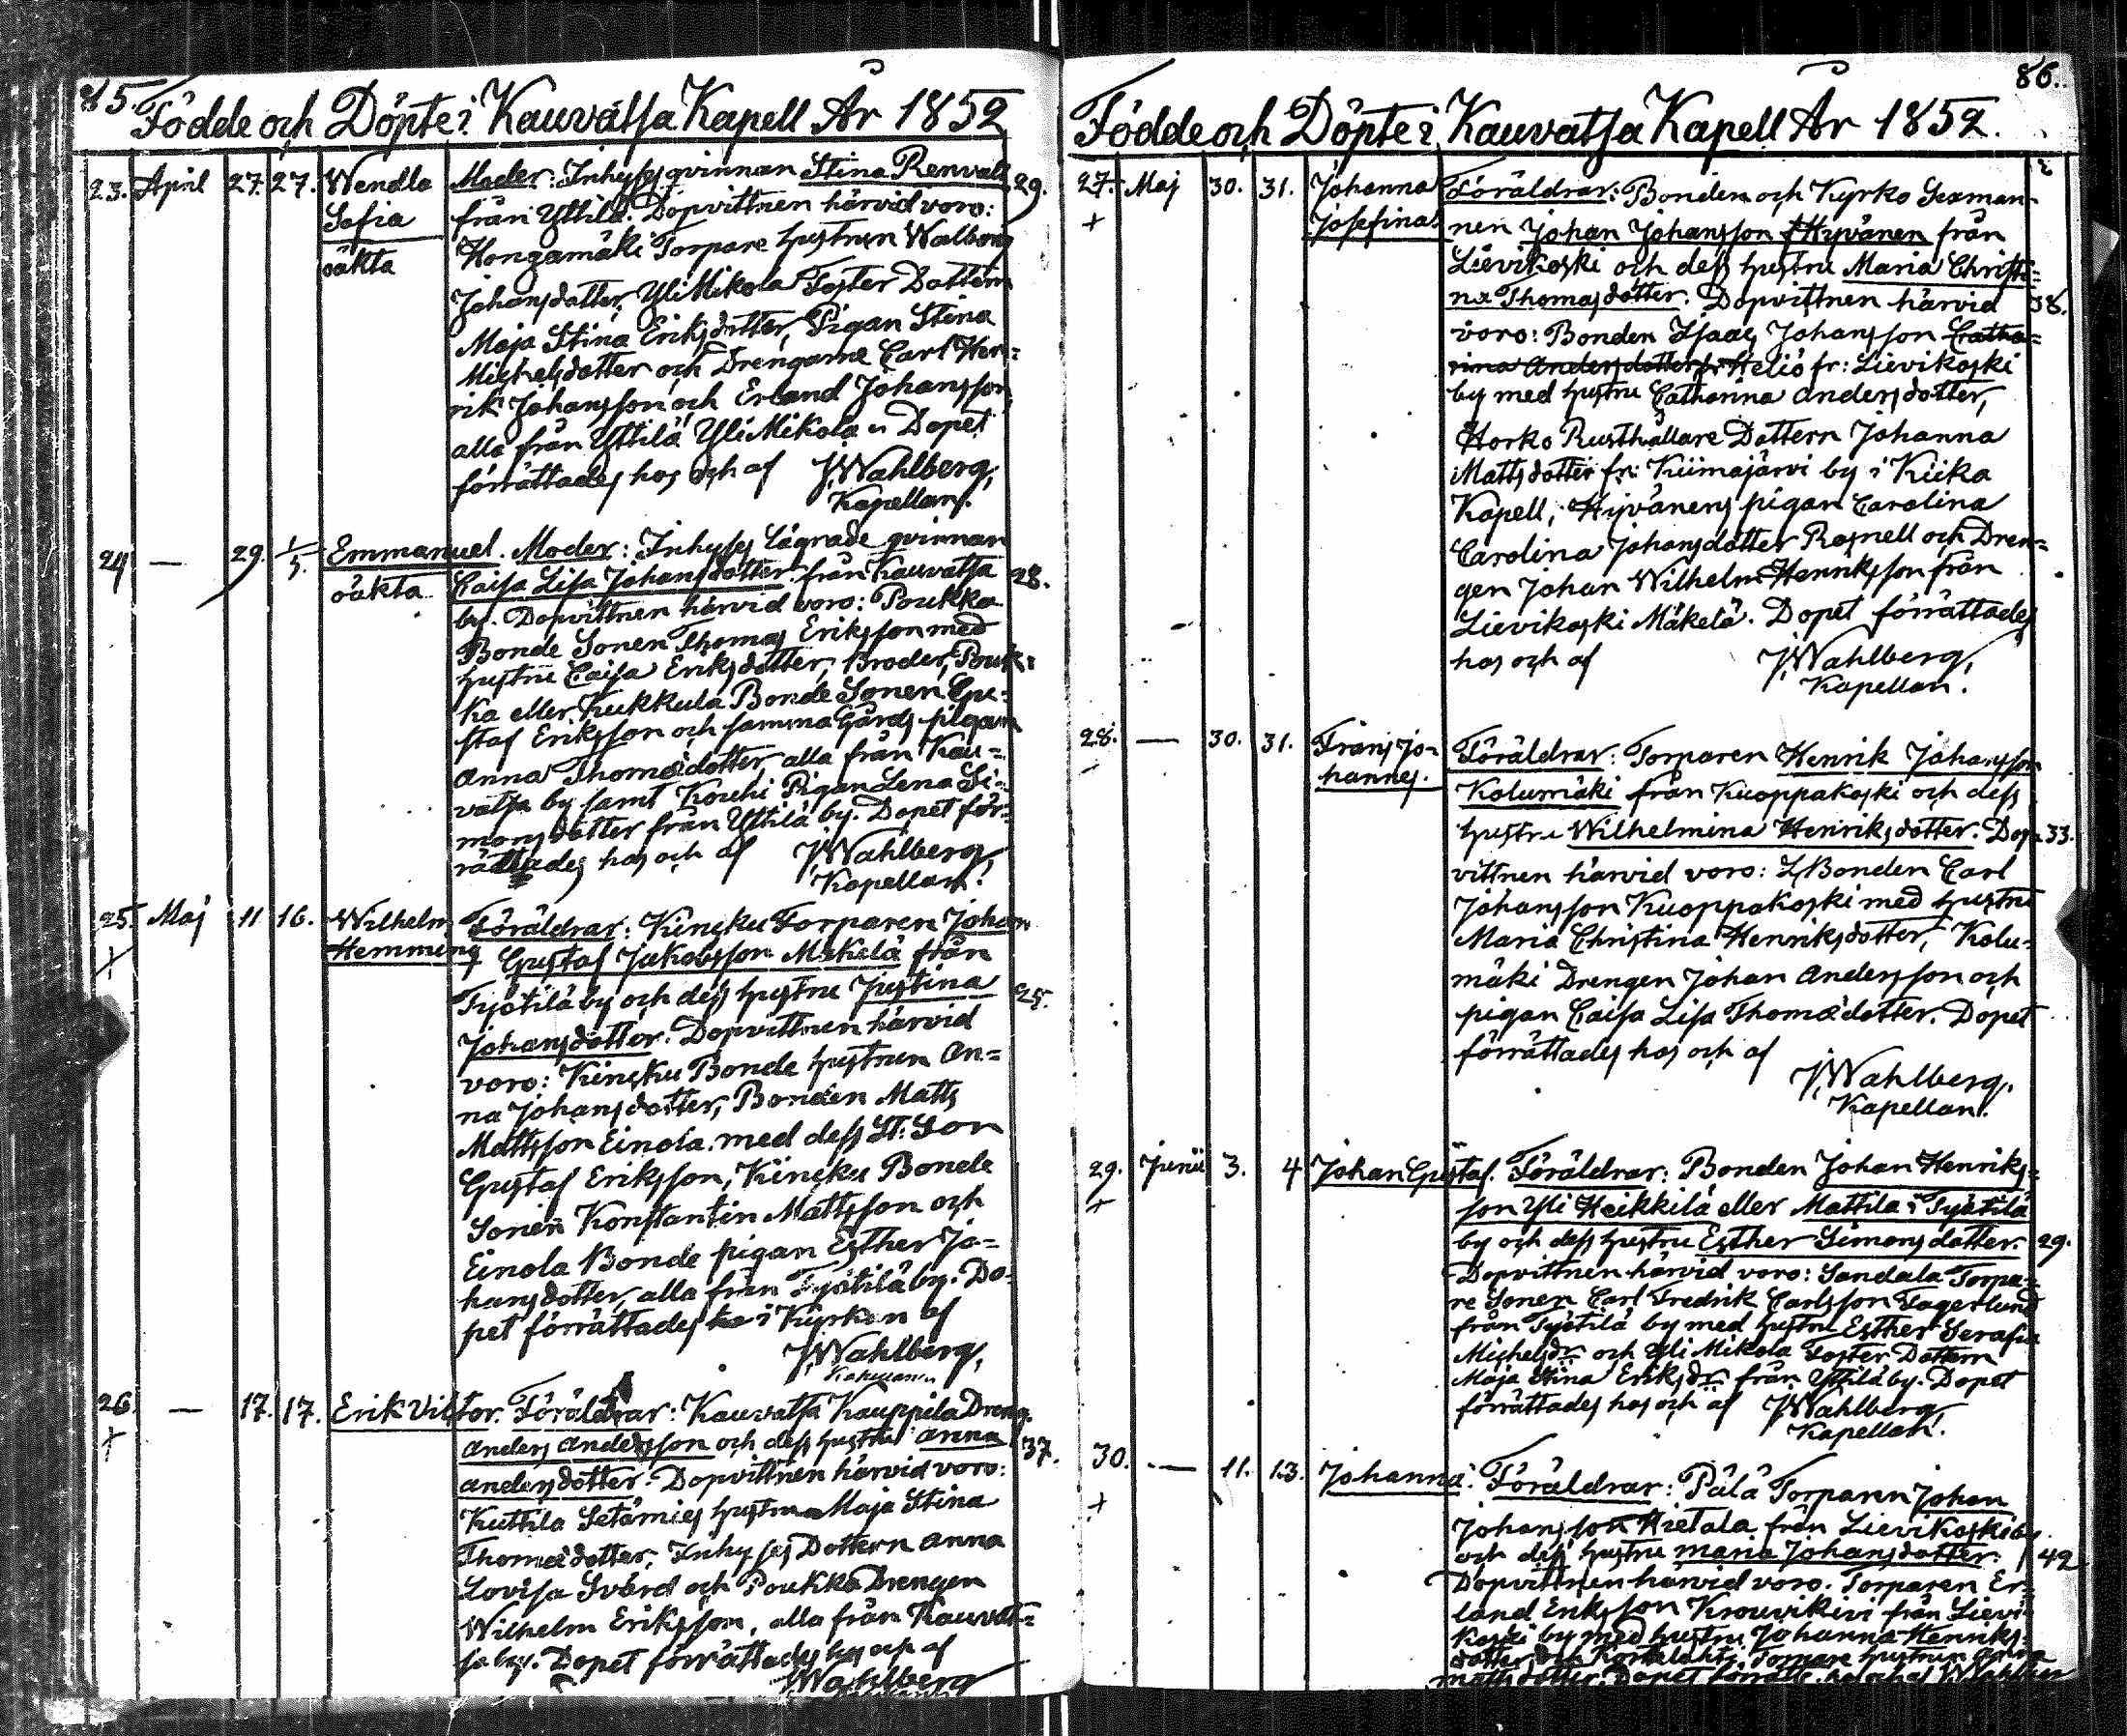 85.
Födde och Döpte i Kauvatsa Kapell År 1852
23. April 27. 27. Wendla Moder: Inhyses qvinnan Stina Renvall 29.
Sofia från Yttilä. Dopvittnen härvid voro:
oäkta Hongamäki Torpare hustrun Walborg
Johansdotter, Yli Mikola Foster Dottern
Maja Stina Eriksdotter, Pigan Stina
Michelsdotter och Drengarne Carl Hen-
rik Johansson och Erland Johansson,
alla från Yttilä Yli Mikola. Dopet
förrättades hos och af JWahlberg,
Kapellan.
24 — 29. 1/5. Emmanuel. Moder: Inhyses lägrade qvinnan
oäkta Caisa Lisa Johansdotter från Kauvatsa 28.
by. Dopvittnen härvid voro: Poukka
Bonde Sonen Thomas Eriksson med
hustru Caisa Eriksdotter, Broder, Pouk-
ka eller Kukkula Bonde Sonen Gu-
staf Eriksson och samma Gårds pigan
Anna Thomædotter alla från Kau-
vatsa by samt Kouhi Pigan Lena Si-
monsdotter från Yttilä by. Dopet för-
rättades hos och af JWahlberg,
Kapellan.
25. Maj 11. 16. Wilhelm Föräldrar: Kinsku Torparen Johan
+ Hemming Gustaf Jakobsson Mäkelä från
Tyotilä by och dess hustru Justina 25.
Johansdotter. Dopvittnen härvid
voro: Kinsku Bonde hustrun An-
na Johansdotter, Bonden Matts
Mattsson Einola med dess St: Son
Gustaf Eriksson, Kinsku Bonde
Sonen Konstantin Mattsson och
Einola Bonde pigan Esther Jo-
hansdotter, alla från Tyotilä by. Do-
pet förrättades i Kyrkan af
JWahlberg,
Kapellan.
26. — 17. 17. Erik Viktor. Föräldrar: Kauvatsa Kauppila Dreng.
+ Anders Andersson och dess hustru Anna 37.
Andersdotter. Dopvittnen härvid voro:
Kuttila Setämies hustrun Maja Stina
Thomædotter, Inhyses Dottern Anna
Lovisa Svärd och Poukka Drengen
Wilhelm Eriksson, alla från Kauvat-
sa by. Dopet förrättades hos och af
JWahlberg
86.
Födde och Döpte i Kauvatsa Kapell År 1852.
27. Maj 30. 31. Johanna Föräldrar: Bonden och Kyrko Sexman-
+ Josefina nen Johan Johansson Hyvänen från
Lievikoski och dess hustru Maria Christi-
na Thomasdotter. Dopvittnen härvid 38.
voro: Bonden Isaac Johansson Catha-
rina Andersdotter fr Heliö fr: Lievikoski
by med hustru Catharina Andersdotter,
Horko Rusthållare Dottern Johanna
Mattsdotter fr: Kiimajärvi by i Kiika
Kapell, Hyvänens pigan Carolina
Carolina Johansdotter Rosnell och Dren-
gen Johan Wilhelm Henriksson från
Lievikoski Mäkelä. Dopet förrättades
hos och af JWahlberg,
Kapellan.
28. — 30. 31. Frans Jo- Föräldrar: Torparen Henrik Johansson
hannes. Kolumäki från Kuoppakoski och dess
hustru Wilhelmina Henriksdotter. Dop- 33.
vittnen härvid voro: Bonden Carl
Johansson Kuoppakoski med hustru
Maria Christina Henriksdotter, Kolu-
mäki Drengen Johan Andersson och
pigan Caisa Lisa Thomædotter. Dopet
förrättades hos och af
JWahlberg.
Kapellan.
29. Junii 3. 4 Johan Gustaf. Föräldrar: Bonden Johan Henriks-
+ son Yli Heikkilä eller Mattila i Tyotilä
by och dess hustru Esther Simonsdotter. 29.
Dopvittnen härvid voro: Sandala Torpa-
re Sonen Carl Fredrik Carlsson Fagerlund
från Tyotilä by med hustru Esther Serafia
Michelsdr och Yli Mikola Foster Dottern
Maja Stina Eriksdr från Yttilä by. Dopet
förrättades hos och af JWahlberg
Kapellan.
30. — 11. 13. Johanna. Föräldrar: Pälä Torparen Johan
+ Johansson Hietala från Lievikoski by.
och dess hustru Maria Johansdotter. 42
Dopvittnen härvid voro. Torparen Er-
land Eriksson Krouvikivi från Lievi-
koski by med hustru Johanna Henriks-
dotter och Torpare hustrun Anna
Mattsdotter. Dopet förrätts. hos och af Wahlberg